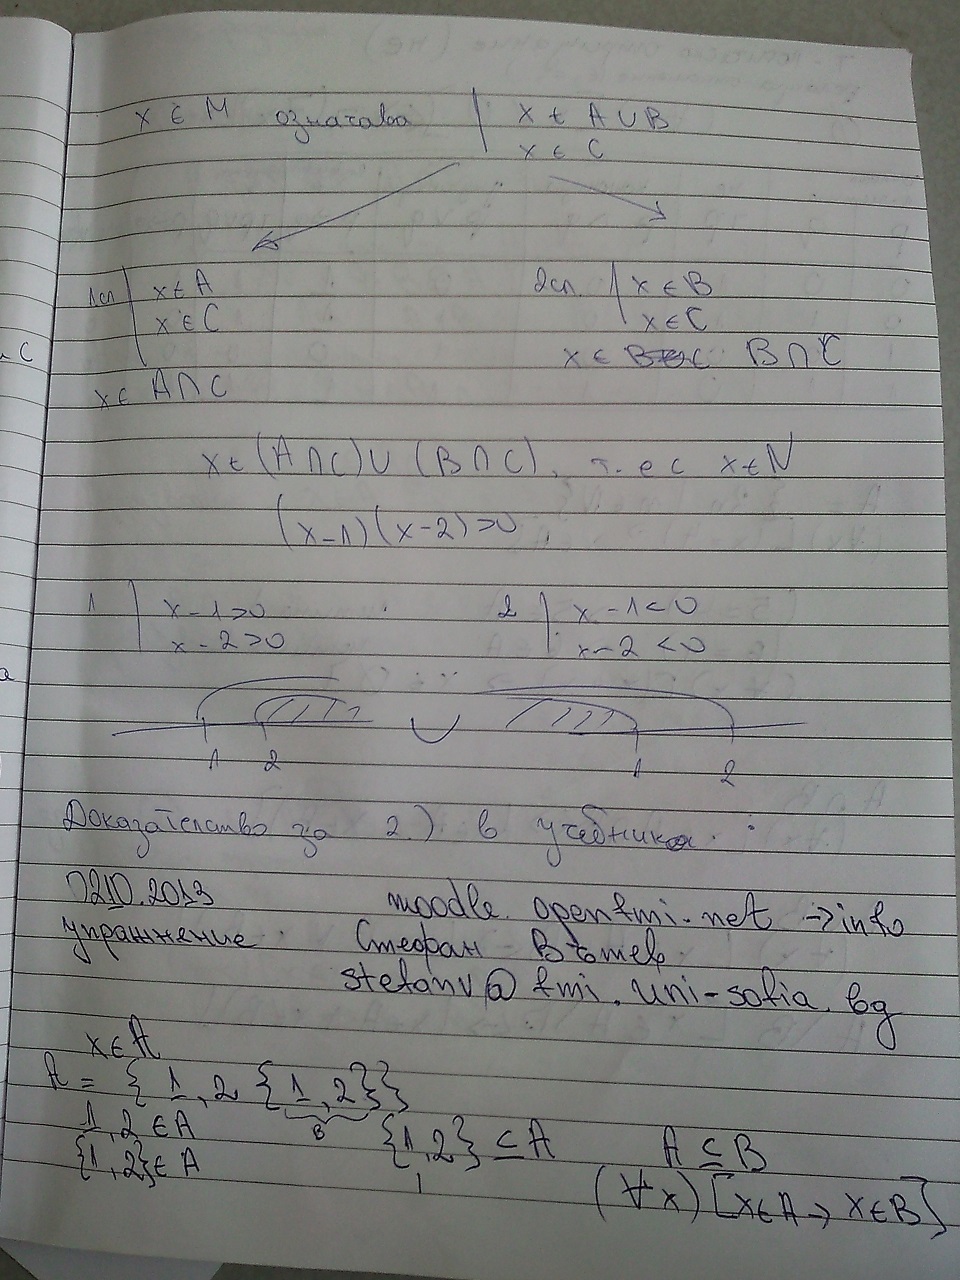 x ∈ M означава | x ∈ A ∪ B
x ∈ C
1сл | x ∈ A
x ∈ C
x ∈ A ∩ C
2сл. | x ∈ B
x ∈ C
x ∈ B ∩ C
x ∈ (A ∩ C) ∪ (B ∩ C), т. е с x ∈ N
(x-1)(x-2)>0
1 | x-1>0
x-2>0
2 | x-1<0
x-2<0
1 2 ∪ 1 2
Доказателство за 2.) в учебника.
02.10.2013 moodle.openfmi.net → info
упражнение Стефан
stefanv@fmi.uni-sofia.bg
x ∈ A
A = { 1, 2 {1, 2}}
B
1, 2 ∈ A
{1, 2} ∈ A
{1,2} ⊆ A
A ⊆ B
(∀x)[x∈A → x∈B]